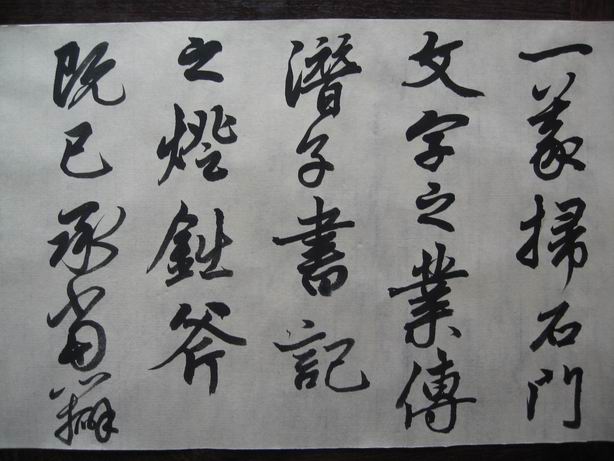 一義掃石門
文字之業傳
潛子書記
之燈鈯斧
既已承當瓣